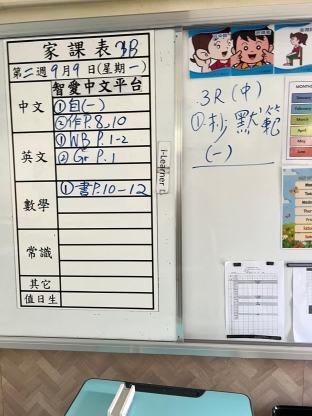 家課表 3B
第二週 9月9日(星期一)
智愛中文平台
中文 ①自(一)
②作P.8,10
英文 ①WB P.1-2
②Gr P.1
i-Learner
數學 ①書P.10-12
常識
其它
值日生
3R(中)
①抄默範
(一)
MONTHS
January
February
March
April
May
June